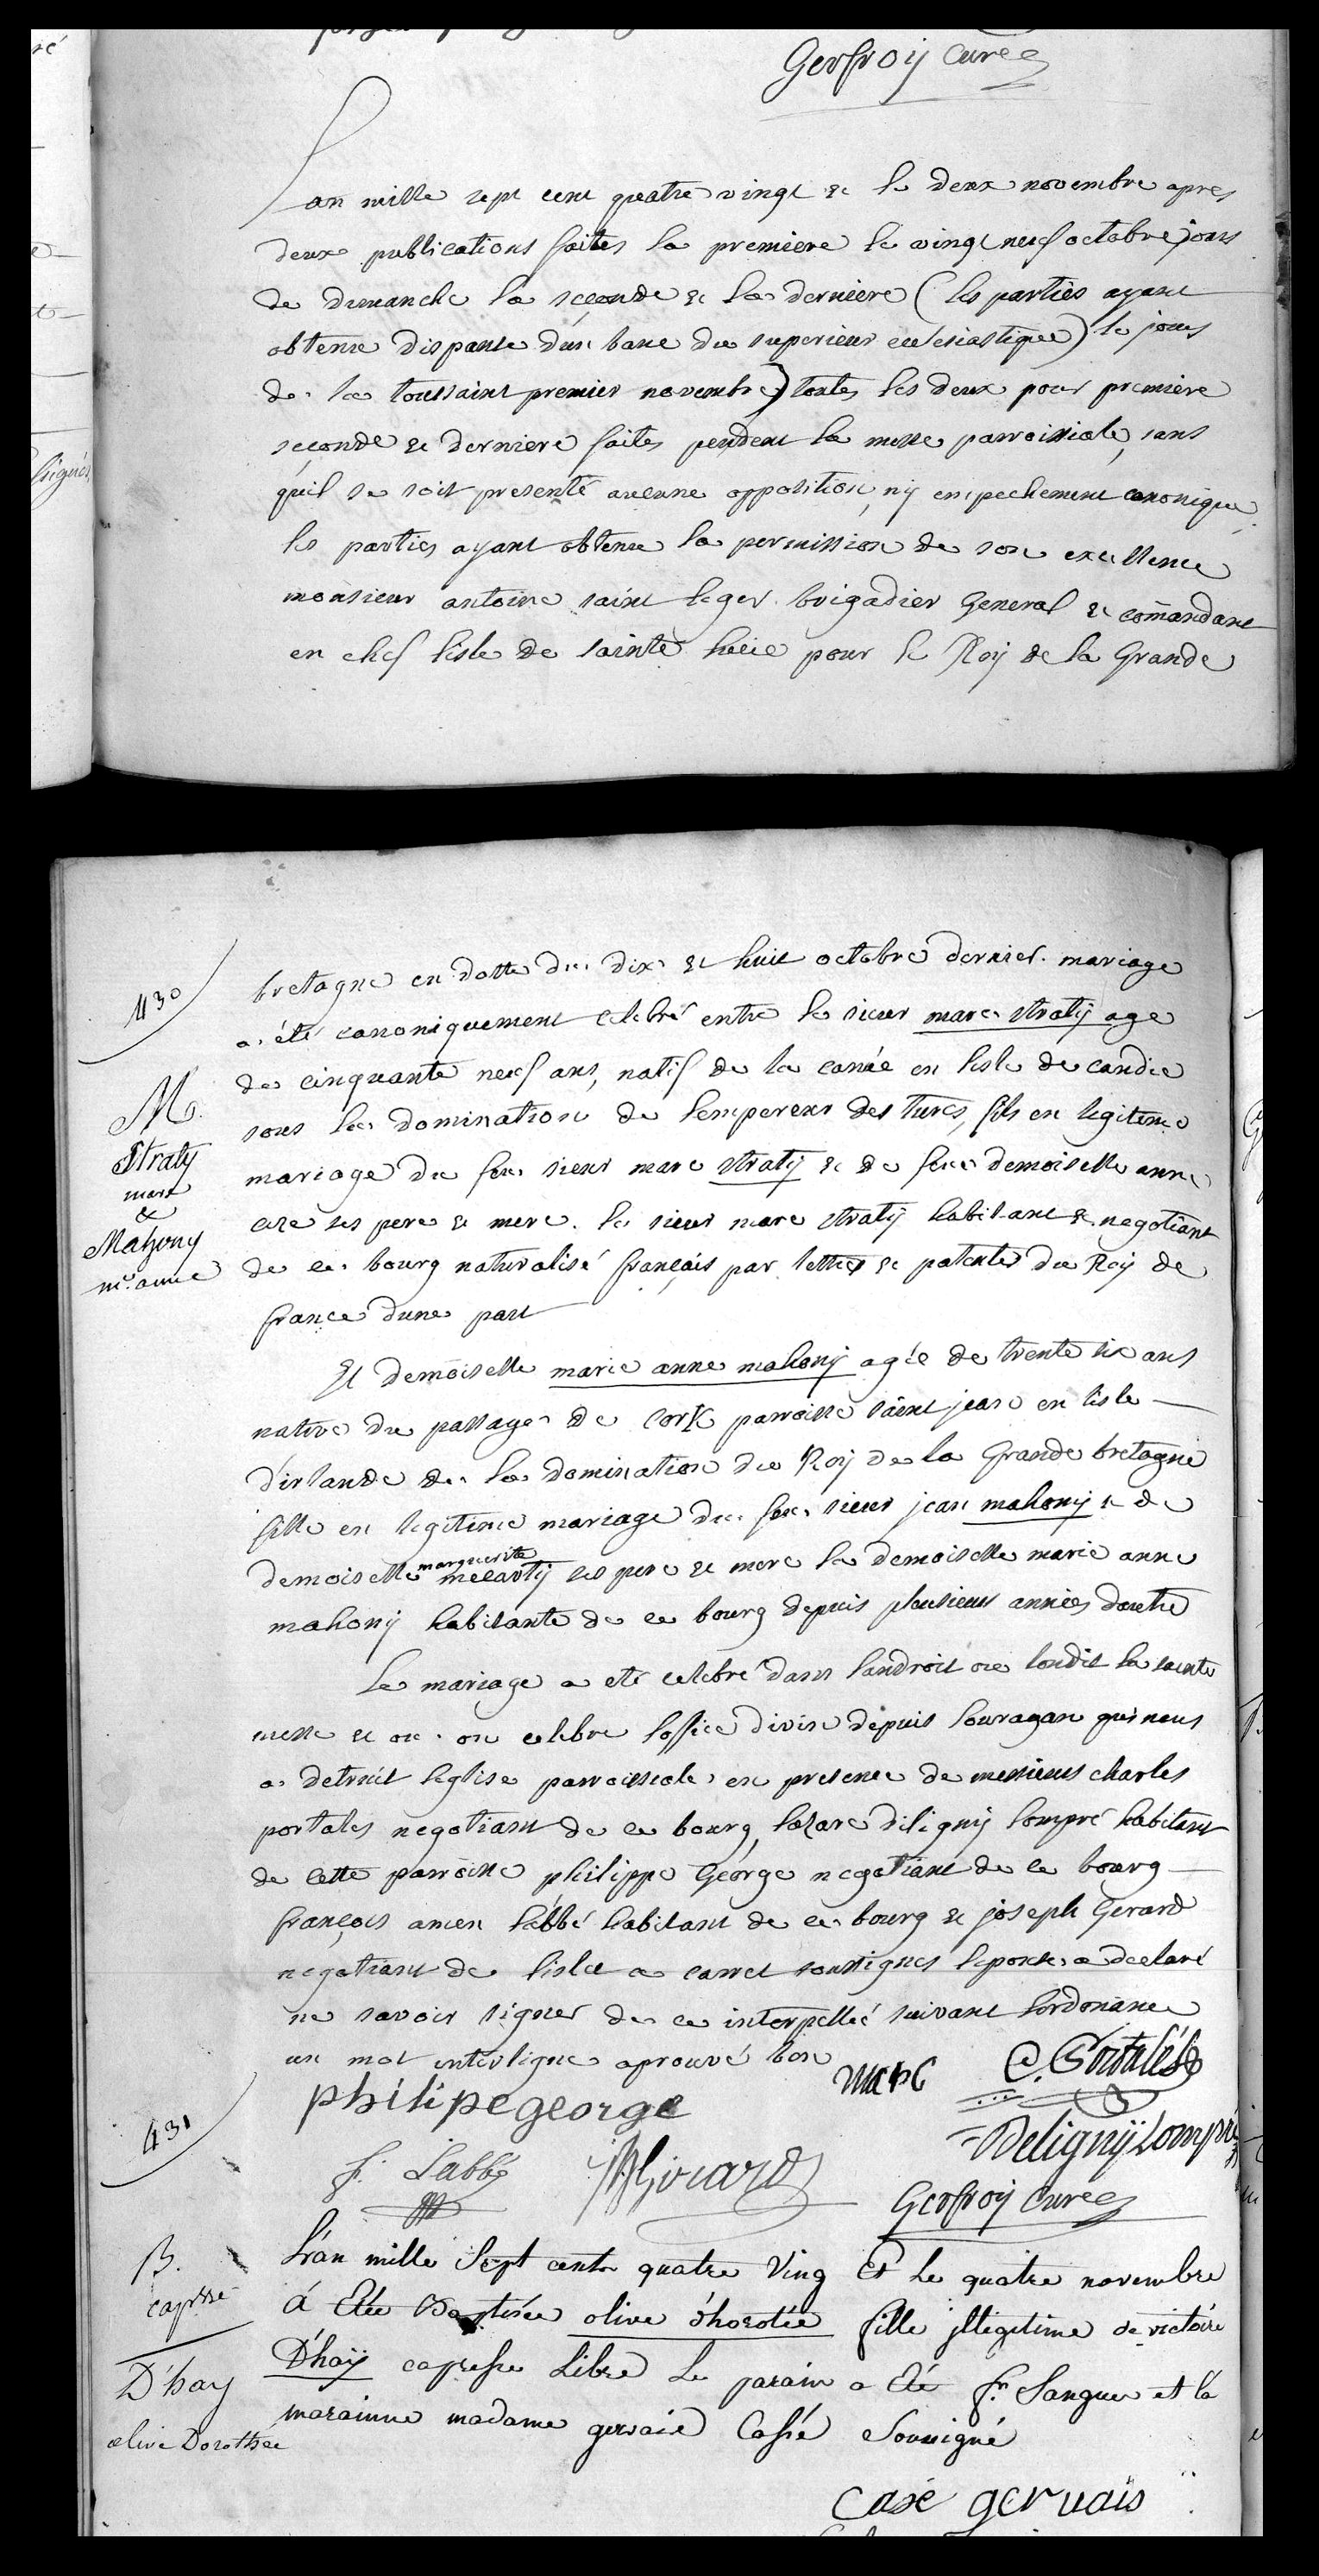 Gerfroij Curé
Lan mille sept cent quatre vingt et le deux novembre apres
deux publications faites la premiere le vingt neuf octobre jours
de dimanche la seconde et la derniere (les parties ayant
obtenu dispanse d'un banc du superieur ecclesiastique) le jours
de la toussaint premier novembre) toutes les deux pour premiere
seconde et derniere faites pendent la messe parroissiale, sans
quil se soit presenté aucune opposition, nij empechement canonique
les parties ayant obtenu la permission de son excellence
monsieur antoine saint leger brigadier General et comandant
en chef lisle de sainte lucie pour le Roij de la Grande
430
bretagne en datte du dix et huit octobre dernier. mariage
a été canoniquement celebré entre le sieur marc stratij age
de cinquante neuf ans, natif de la canée en lisle de candie
sous la domination de lempereur des turcs, fils en legitime
mariage du feu sieur marc stratij et de feue demoiselle anne
ses pere et mere. le sieur marc stratij habitant et negotiant
de ce bourg naturalisé français par lettres et patentes du Roij de
france dune part
M.
Straty
marc
&
Mahony
me. anne
Et demoiselle marie anne mahonij agée de trente six ans
native du passage de Cork parroisse saint jean en lisle
d'irlande de la domination du Roij de la Grande bretagne
fille en legitime mariage du feu sieur jean mahonij et de
demoiselle marguerite mecartij ses pere et mere la demoiselle marie anne
mahonij habitante de ce bourg depuis plusieurs années dautre
Le mariage a eté celebré dans landroit ou londit la sainte
messe et ou on celebre loffice divin depuis louragan qui nous
a detruit leglise parroissiale en presence de messieurs charles
portales negotiant de ce bourg, lazare dilignij lompré habitant
de cette parroisse philippe George negotiant de ce bourg
françois amen labbé habitant de ce bourg et joseph Gerard
negotiant de lisle a carret soussignes lepouse a declaré
ne savoir signer de ce interpellé suivant lordonance
un mot interligne aprouvé bon
marc
C. Portalés
philipe george
Deligniÿ Lompré
f. Labbé
Gerfroij Curé
431
B.
capsse
D'hay
olive Dorothée
L'an mille Sept cents quatre Ving Et Le quatre novembre
á Etée Baptisée olive d'horotée fille jllégitime de victoire
D'haÿ capresse Libre Le parain a Eté fr. Sangueu et la
marainne madame gervais Cassé Soussigné
Casé gervais